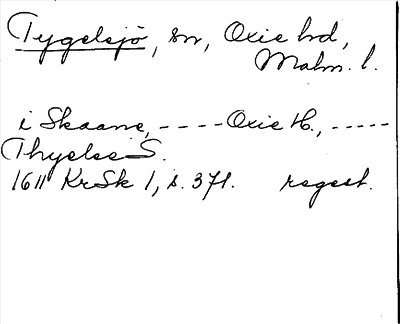 Tygelsjö, sn, Oxie hd,
Malm. l.
i Skaane, ---- Oxie H., -----
Thyelse S.
1611 KrSk 1, s. 371. regest.